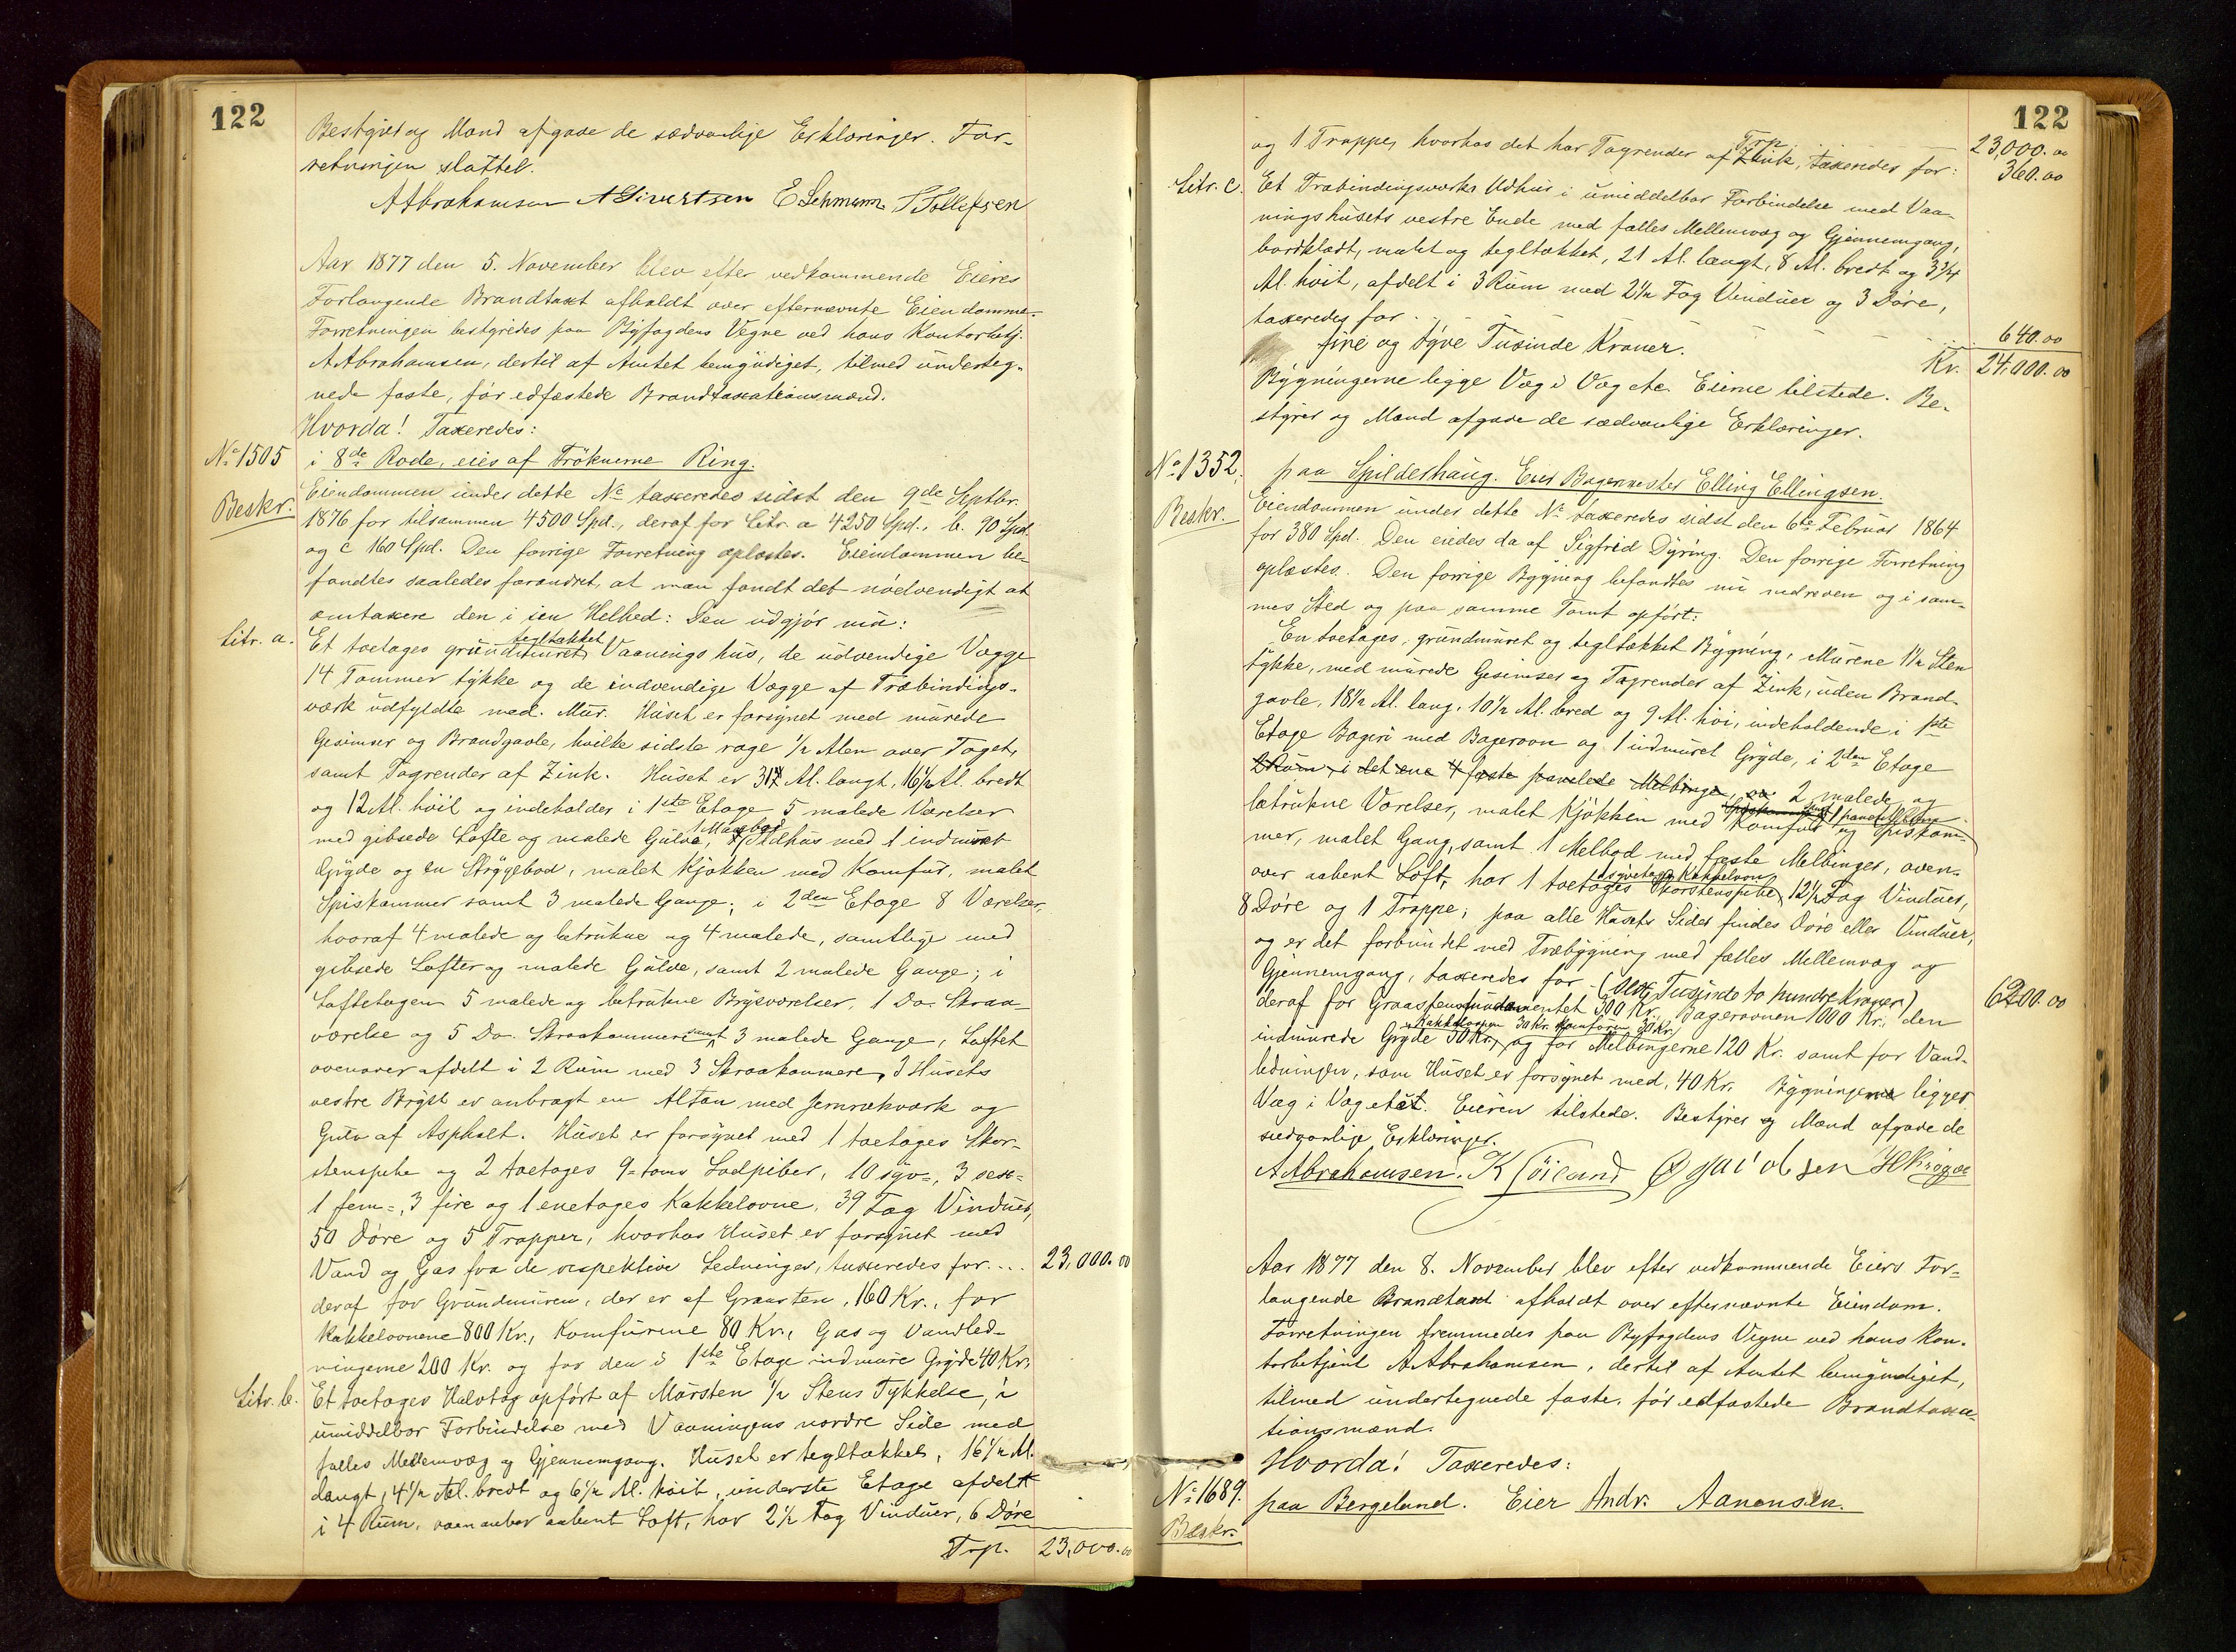 122
Bestyrer og Mænd afgave de sædvanlige Erklæringer. For-
retningen sluttet.
A Abrahamsen A Sivertsen E Lehmann T Tollefsen
Aar 1877 den 5. November blev efter vedkommende Eieres
Forlangende Brandtaxt afholdt over efternævnte Eiendomme.
Forretningen bestyredes paa Byfogdens Vegne ved hans Kontorbetj.
A Abrahamsen, dertil af Amtet bemyndiget, tilmed underteg-
nede faste, før edfæstede Brandtaxationsmænd.
Hvorda! Taxeredes:
No 1505 i 8de Rode, eies af Frøknerne Ring.
Beskr. Eiendommen under dette No taxeredes sidst den 9de Septbr.
1876 for tilsammen 4500 Spd., deraf for Litr. a 4250 Spd., b. 90 Spd.
og c 160 Spd. Den forrige Forretning oplæstes. Eiendommen be-
fandtes saaledes forandret, at man fandt det nødvendigt at
omtaxere den i sin Helhed: Den udgjør nu:
Litr. a. Et toetages grundmuret tegltækket Vaaningshus, de udvendige Vægge
14 Tommer tykke og de indvendige Vægge af Træbindings-
værk udfyldte med Mur. Huset er forsynet med murede
Gesimser og Brandgavle, hvilke sidste rage 1/2 Alen over Taget,
samt Tagrender af Zink. Huset er Al. langt, 16 1/2 Al. bredt
og 12 Al. høit og indeholder i 1ste Etage 5 malede Værelser
med gibsede Lofte og malede Gulve, 1 Madbod, Ildhus med 1 indmuret
Gryde og en Strygebod, malet Kjøkken med Komfur, malet
Spiskammer samt 3 malede Gange; i 2den Etage 8 Værelser,
hvoraf 4 malede og betrukne og 4 malede, samtlige med
gibsede Lofter og malede Gulve, samt 2 malede Gange; i
Loftetagen 5 malede og betrukne Bryværelser, 1 Do. Skraa-
værelse og 5 Do. Skraakammere samt 3 malede Gange, Loftet
ovenover afdelt i 2 Rum med 3 Skraakammere. I Husets
vestre Bryst er anbragt en Altan med Jernrækværk og
Gulv af Asphalt. Huset er forsynet med 1 toetages Skor-
stenspibe og 2 toetages 9-toms Lodpiber, 10 syv-, 3 sex-
1 fem-, 3 fire og 1 enetages Kakkelovne, 39 Fag Vinduer,
50 Døre og 5 Trapper, hvorhos Huset er forsynet med
Vand og Gas fra de respektive Ledninger, taxeredes for.... 23,000.00
deraf for Grundmuren, der er af Graasten, 160 Kr., for
Kakkelovnene 800 Kr., Komfurene 80 Kr., Gas og Vandled-
ningerne 200 Kr. og for den i 1ste Etage indmure Gryde 40 Kr.
Litr. b. Et toetages Halvtag opført af Mursten 1/2 Stens Tykkelse, i
umiddelbar Forbindelse med Vaaningens nordre Side med
fælles Mellemvæg og Gjennemgang. Huset er tegltækket, 16 1/2 Al.
langt, 4 1/2 Al. bredt og 6 1/2 Al. høit, underste Etage afdelt
i 4 Rum, ovenover aabent Loft, har 2 1/2 Fag Vinduer, 6 Døre
Trp. 23,000.00
122
Trp. 23,000.00
og 1 Trappe, hvorhos det har Tagrender af Zink, taxeredes for: 360.00
Litr. c. Et Træbindingsværks Udhus i umiddelbar Forbindelse med Vaa-
ningshusets vestre Ende med fælles Mellemvæg og Gjennemgang,
bordklædt, malet og tegltækket, 21 Al. langt, 8 Al. bredt og 3 3/4
Al. høit, afdelt i 3 Rum med 2 1/2 Fag Vinduer og 3 Døre,
taxeredes for . . . 640.00
fire og tyve Tusinde Kroner. Kr. 24,000.00
Bygningerne ligge Væg i Væg etc. Eierne tilstede. Be-
styrer og Mænd afgave de sædvanlige Erklæringer.
No 1352. paa Spilderhaug. Eier Bagermester Elling Ellingsen.
Beskr. Eiendommen under dette No taxeredes sidst den 6te Februar 1864
for 380 Spd. Den eiedes da af Sigfrid Dyring. Den forrige Forretning
oplæstes. Den forrige Bygning befandtes nu nedreven og i sam-
mes Sted og paa samme Tomt opført:
En toetages, grundmuret og tegltækket Bygning, Murene 1 1/2 Sten
tykke, med murede Gesimser og Tagrender af Zink, uden Brand-
gavle, 18 1/2 Al. lang, 10 1/2 Al. bred og 9 Al. høi, indeholdende i 1ste
Etage Bageri med Bagerovn og 1 indmuret Gryde, i 2den Etage
2 Rum, i det ene 4 faste panelede Melbinger, 2 malede og
betrukne Værelser, malet Kjøkken med Komfur og Spiskam-
mer, malet Gang, samt 1 Melbod med faste Melbinger, oven-
over aabent Loft, har 1 toetages Skorstenspibe, 12 1/2 Fag Vinduer,
8 Døre og 1 Trappe; paa alle Husets Sider findes Døre eller Vinduer,
og er det forbundet med Træbygning med fælles Mellemvæg og
Gjennemgang, taxeredes for. (Sex Tusinde to hundre Kroner) 6200.00
deraf for Graastensfundamentet 300 Kr., Bagerovnen 1000 Kr., den
indmurede Gryde 30 Kr., Kakkelovnen 30 Kr. Komfuren 30 Kr., og for Melbingerne 120 Kr. samt for Vand-
ledningen, som Huset er forsynet med, 40 Kr. Bygningerne ligger
Væg i Væg etc. Eieren tilstede. Bestyrer og Mænd afgave de
sædvanlige Erklæringer.
A Abrahamsen.
Aar 1877 den 8. November blev efter vedkommende Eiers For-
langende Brandtaxt afholdt over efternævnte Eiendom.
Forretningen fremmedes paa Byfogdens Vegne ved hans Kon-
torbetjent A Abrahamsen, dertil af Amtet bemyndiget,
tilmed undertegnede faste, før edfæstede Brandtaxa-
tionsmænd.
Hvorda! Taxeredes:
No 1689. paa Bergeland. Eier Andr. Aanensen.
Beskr.